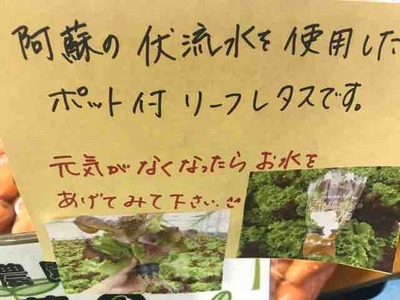 阿蘇の伏流水を使用した
ポット付リーフレタスです。
元気がなくなったらお水を
あげてみて下さい。
農